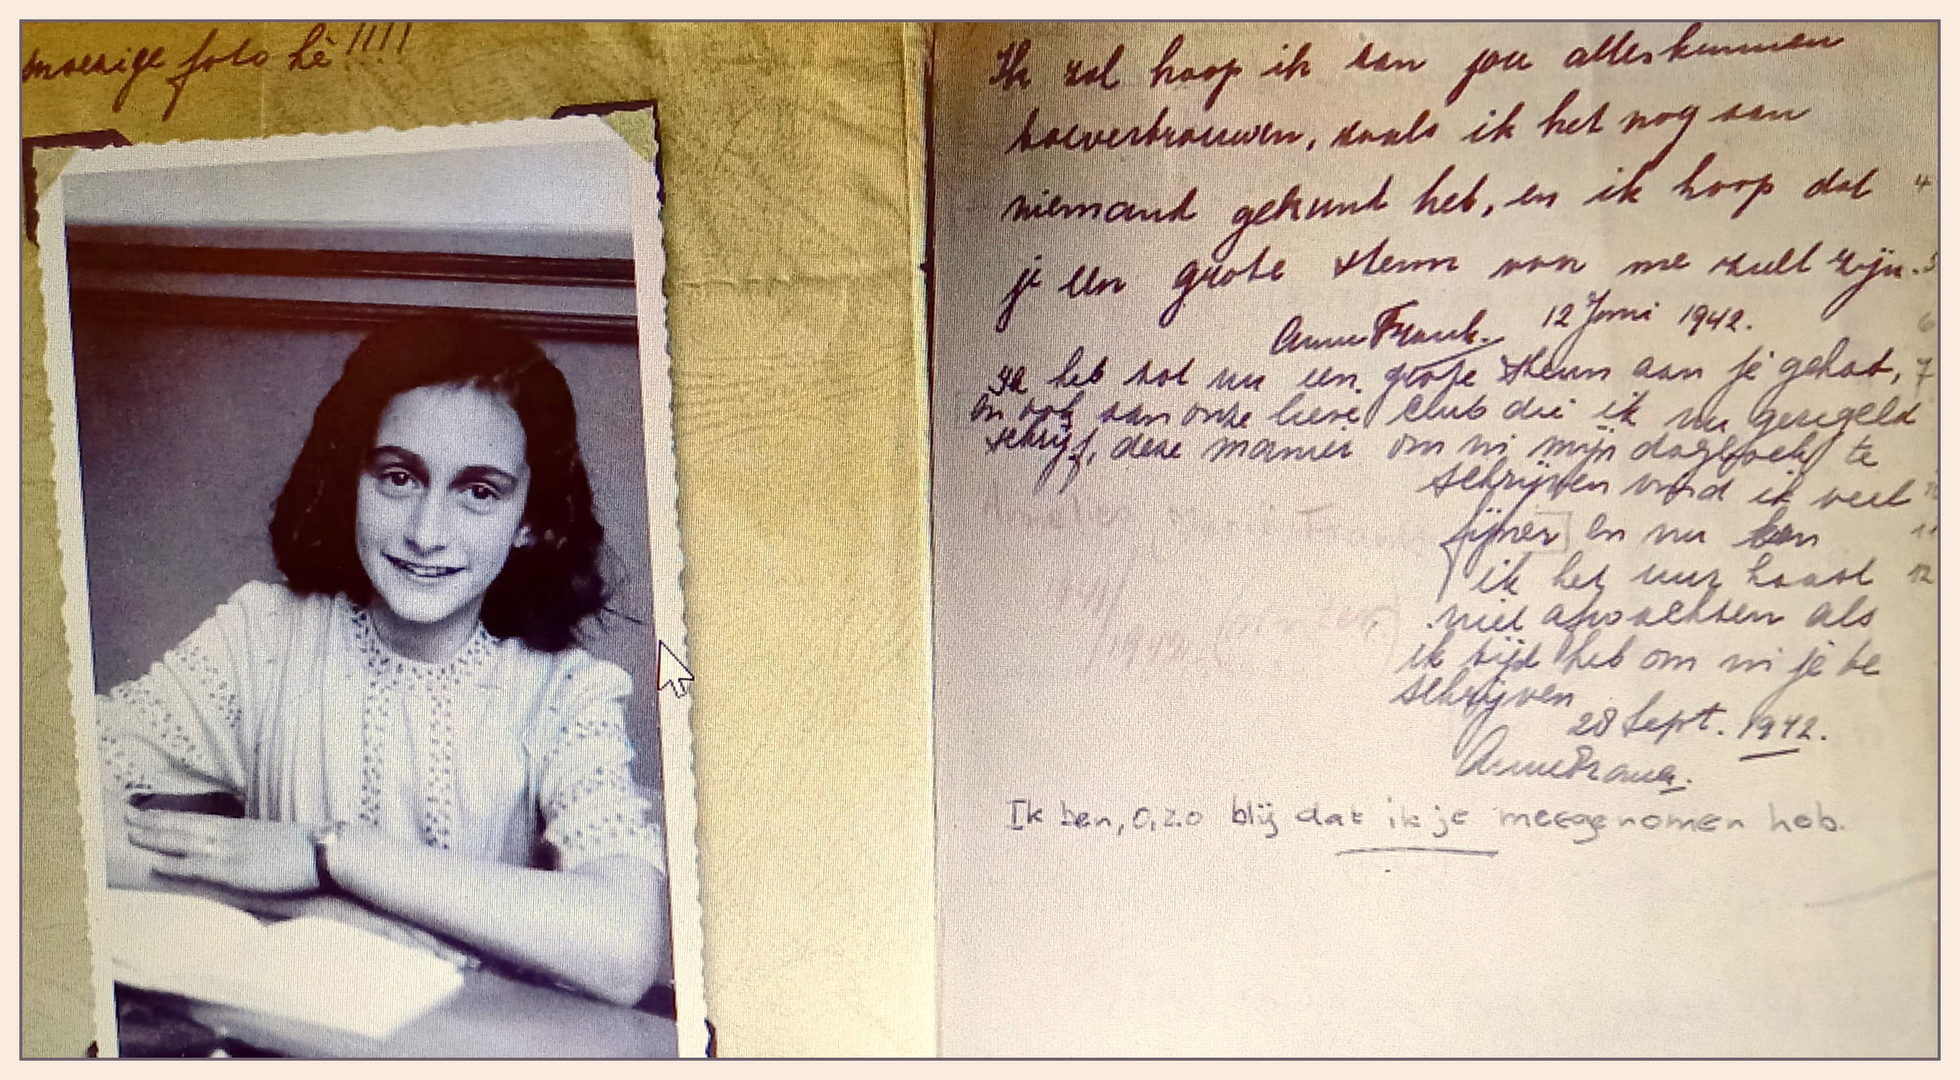 snoezige foto hè!!!!
Ik zal hoop ik aan jou alles kunnen
toevertrouwen, zoals ik het nog aan
niemand gekund heb, en ik hoop dat
je een grote steun voor me zult zijn.
Anne Frank. 12 Juni 1942.
Ik heb tot nu een grote steun aan je gehad,
en ook aan onze lieve club die ik nu geregeld
schrijf, deze manier om in mijn dagboek te
schrijven vind ik veel
fijner en nu kan
ik het uur haast
niet afwachten als
ik tijd heb om in je te
schrijven
28 Sept. 1942.
Anne Frank.
Ik ben, o, zo blij dat ik je meegenomen heb.